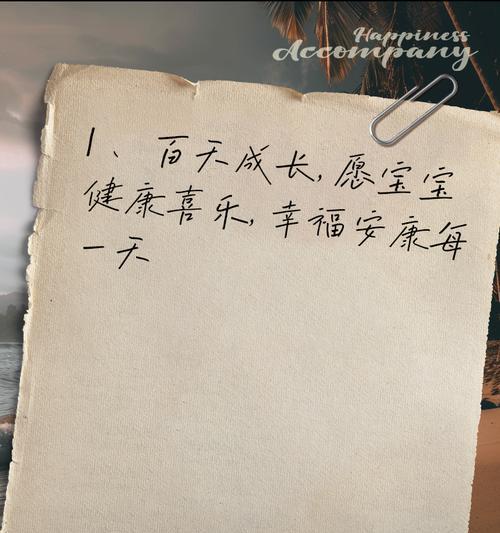 Happiness
Accompany
1、百天成长,愿宝宝
健康喜乐,幸福安康每
一天